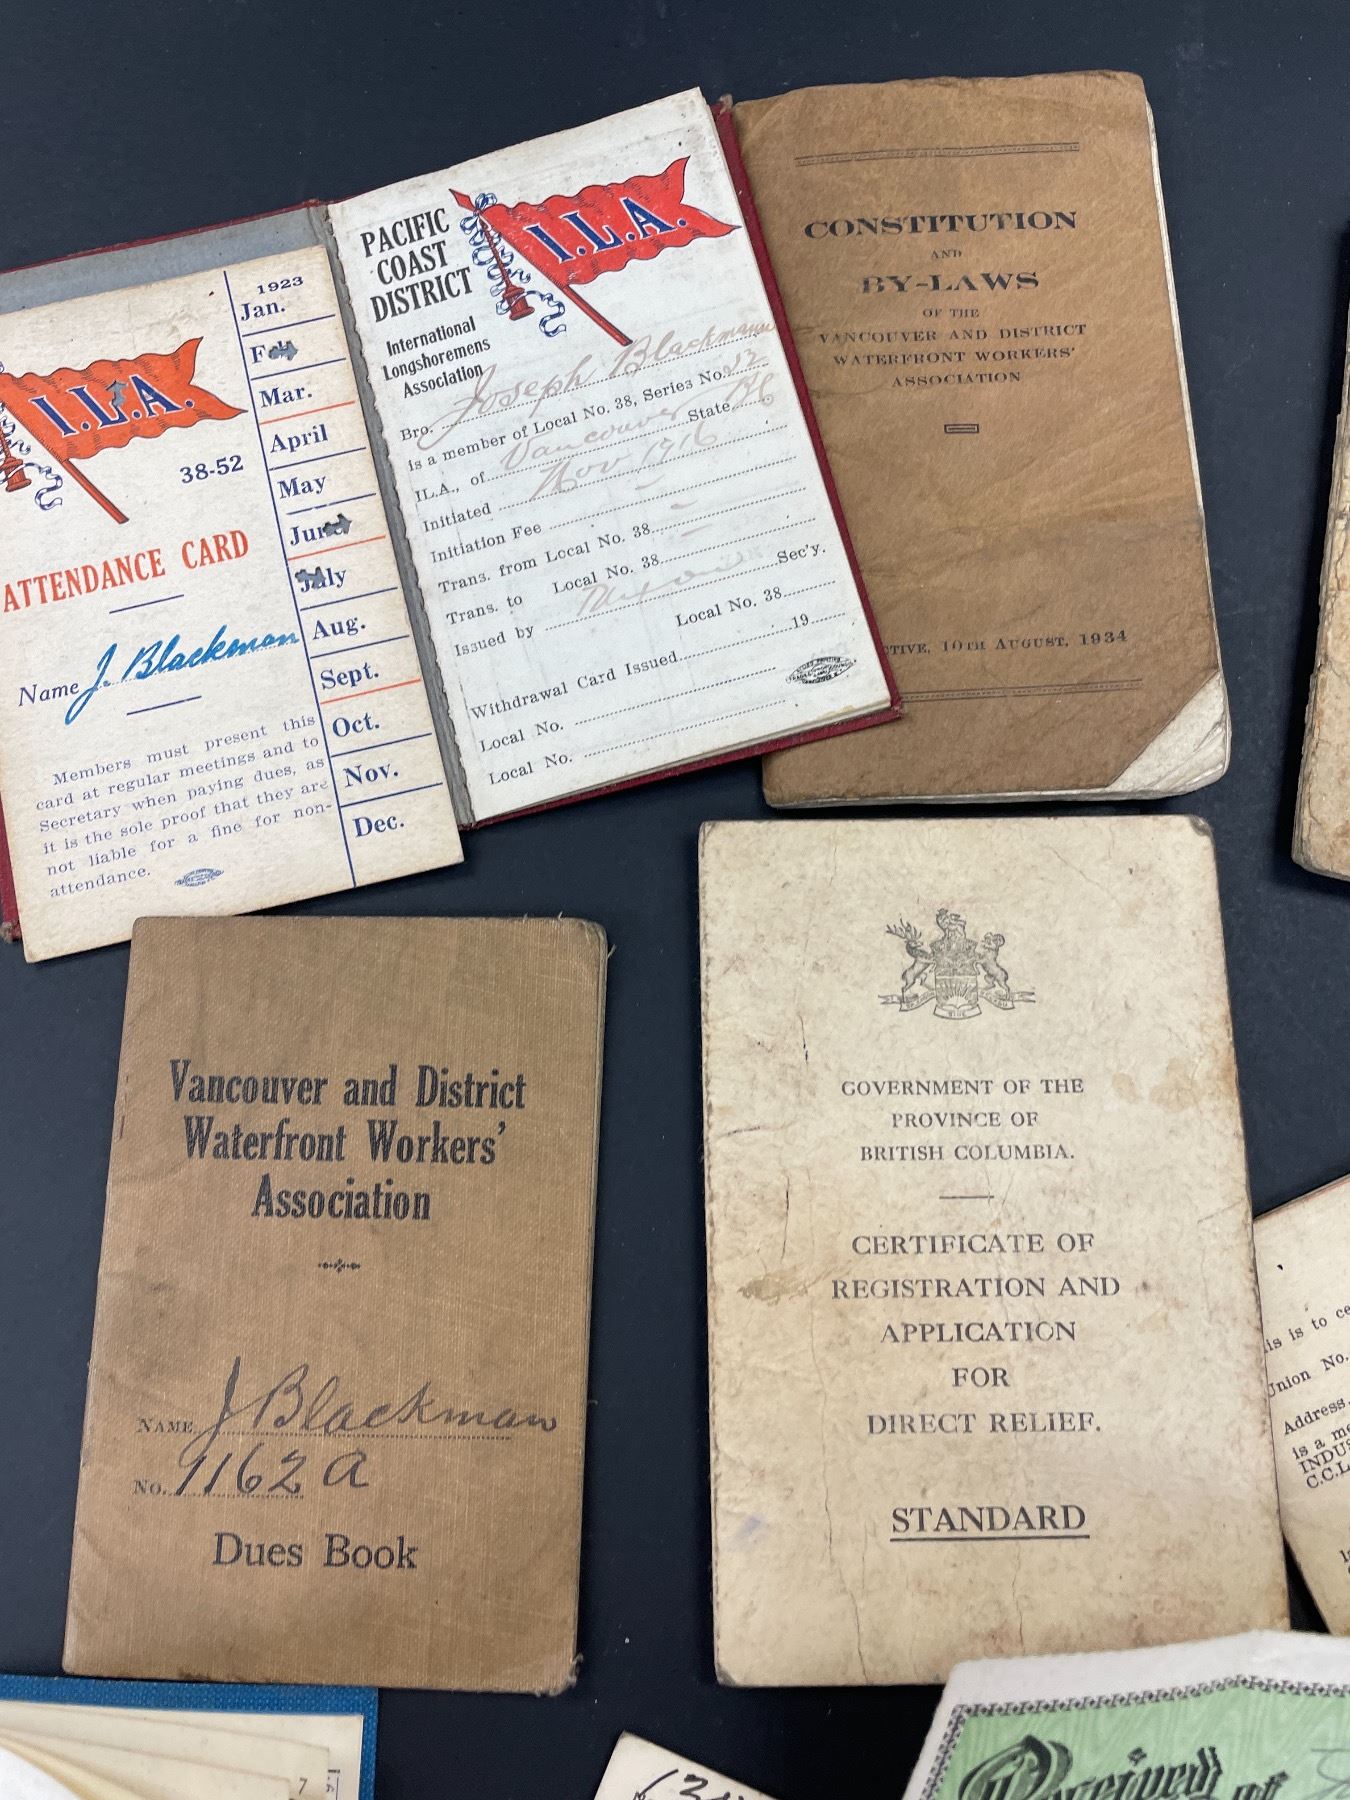 1923
Jan.
Feb.
Mar.
April
May
June
July
Aug.
Sept.
Oct.
Nov.
Dec.
I.L.A.
38-52
ATTENDANCE CARD
Name J. Blackman
Members must present this
card at regular meetings and to
Secretary when paying dues, as
it is the sole proof that they are
not liable for a fine for non-
attendance.
PACIFIC
COAST
DISTRICT
I.L.A.
International
Longshoremens
Association
Bro. Joseph Blackmann
is a member of Local No. 38, Series No. 2 12
I.L.A., of Vancouver State BC
Initiated Nov 1916
Initiation Fee —
Trans. from Local No. 38 —
Trans. to Local No. 38 —
Issued by Sec'y.
Local No. 38
Withdrawal Card Issued 19
Local No.
Local No.
CONSTITUTION
AND
BY-LAWS
OF THE
VANCOUVER AND DISTRICT
WATERFRONT WORKERS'
ASSOCIATION
CTIVE, 10TH AUGUST, 1934
Vancouver and District
Waterfront Workers'
Association
NAME J Blackman
No. 1162 A
Dues Book
GOVERNMENT OF THE
PROVINCE OF
BRITISH COLUMBIA.
CERTIFICATE OF
REGISTRATION AND
APPLICATION
FOR
DIRECT RELIEF.
STANDARD
is is to ce
Union No.
Address
is a me
INDUS
C.C.L
7
Received of